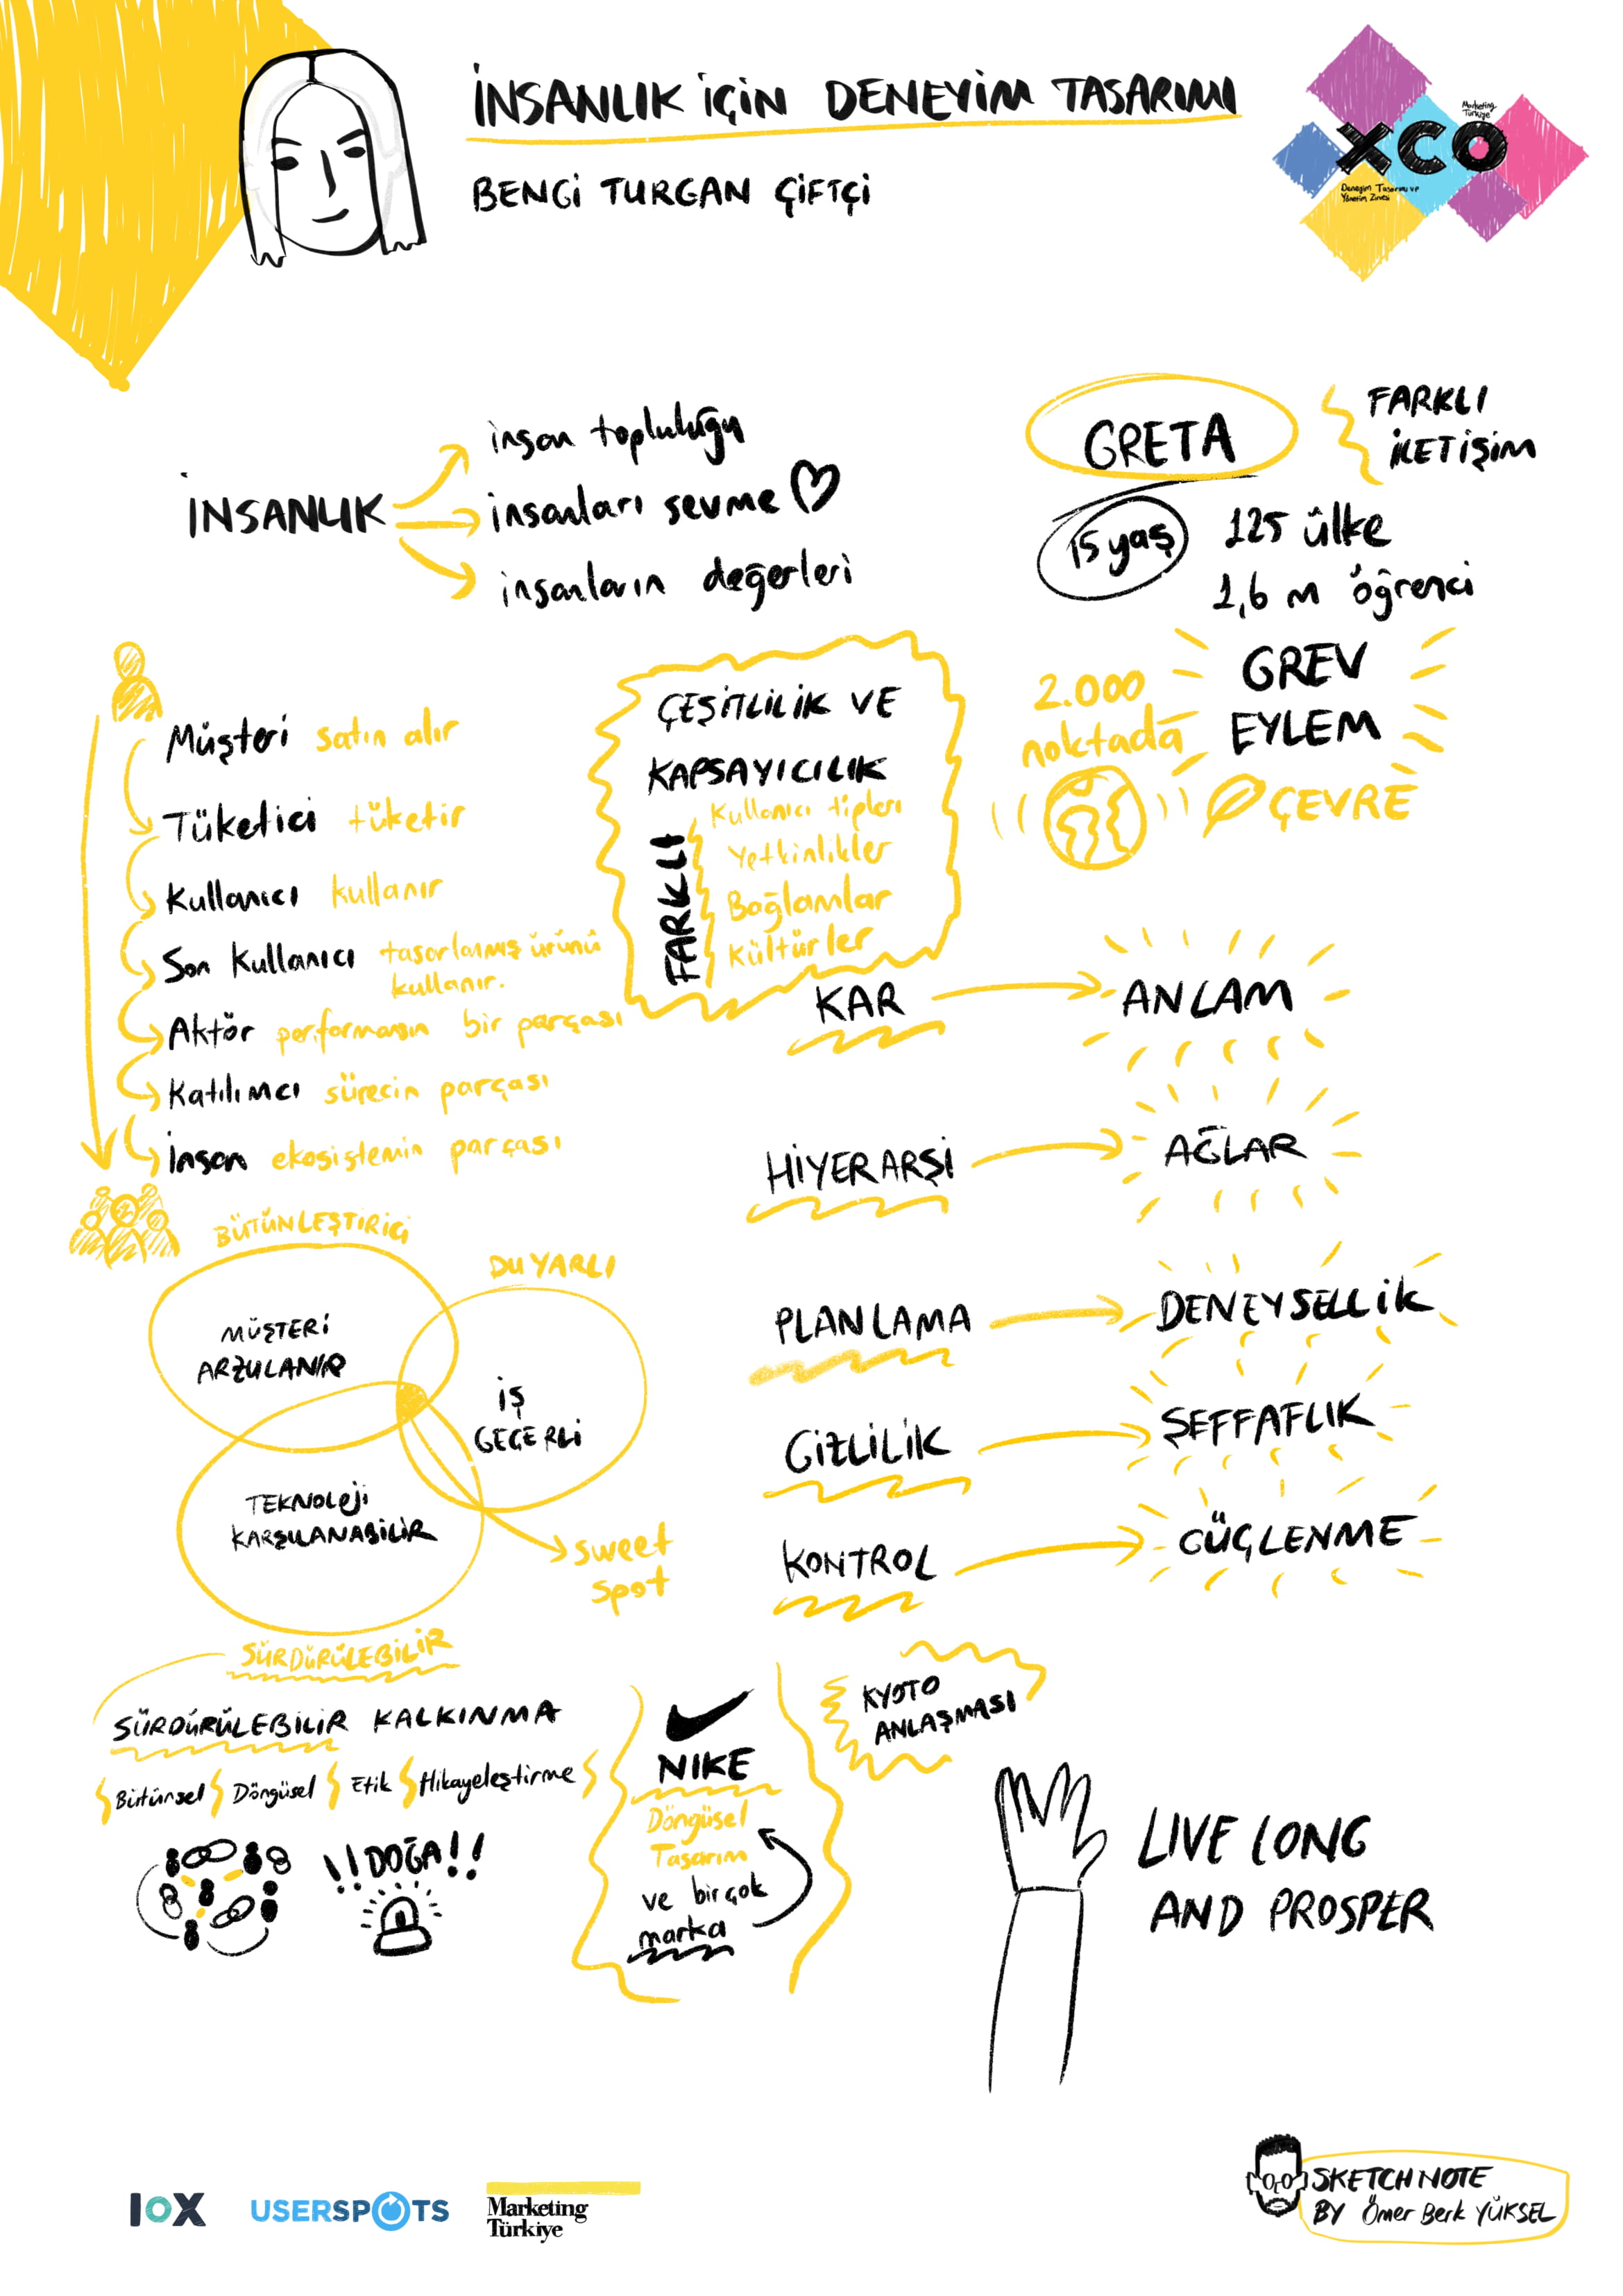 İNSANLIK İÇİN DENEYİM TASARIMI
BENGİ TURGAN ÇİFTÇİ
Marketing
Türkiye
XCO
Deneyim Tasarımı ve
Yönetim Zirvesi
İNSANLIK
insan topluluğu
insanları sevme
insanların değerleri
GRETA
FARKLI
İLETİŞİM
15 yaş
125 ülke
1,6 m öğrenci
2.000
noktada
GREV
EYLEM
ÇEVRE
Müşteri satın alır
Tüketici tüketir
Kullanıcı kullanır
Son Kullanıcı tasarlanmış ürünü
kullanır.
Aktör performansın bir parçası
Katılımcı sürecin parçası
İnsan ekosistemin parçası
ÇEŞİTLİLİK VE
KAPSAYICILIK
FARKLI
Kullanıcı tipleri
Yetkinlikler
Bağlamlar
Kültürler
KAR
ANLAM
HİYERARŞİ
AĞLAR
PLANLAMA
DENEYSELLİK
GİZLİLİK
ŞEFFAFLIK
KONTROL
GÜÇLENME
BÜTÜNLEŞTİRİCİ
DUYARLI
MÜŞTERİ
ARZULANIR
İŞ
GEÇERLİ
TEKNOLOJİ
KARŞILANABİLİR
sweet
spot
SÜRDÜRÜLEBİLİR
SÜRDÜRÜLEBİLİR KALKINMA
Bütünsel Döngüsel Etik Hikayeleştirme
!! DOĞA !!
NIKE
Döngüsel
Tasarım
ve birçok
marka
KYOTO
ANLAŞMASI
LIVE LONG
AND PROSPER
IOX
USERSPOTS
Marketing
Türkiye
SKETCHNOTE
BY Ömer Berk YÜKSEL